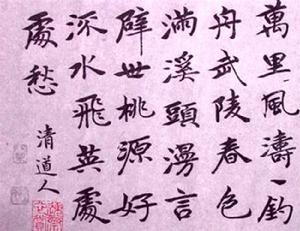 萬里風濤一釣
舟武陵春色
滿溪頭漫言
辟世桃源好
流水飛英處
處愁
清道人